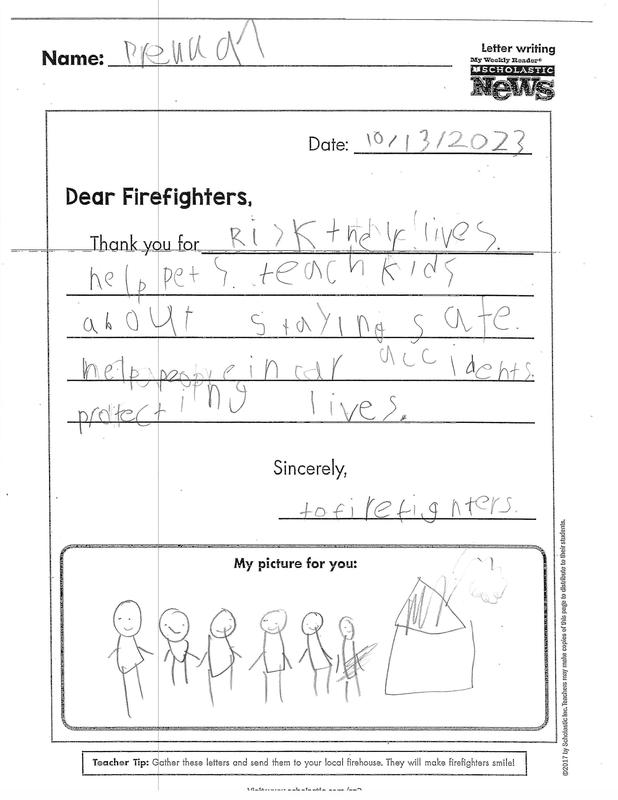 Name:
Letter writing
My Weekly Reader®
SCHOLASTIC
NeWS
Date: 10/13/2023
Dear Firefighters,
Thank you for Risk their lives.
help pets. teach kids
about staying safe.
help people in car accidents.
protecting lives.
Sincerely,
to firefighters.
My picture for you:
Teacher Tip: Gather these letters and send them to your local firehouse. They will make firefighters smile!
©2017 by Scholastic Inc. Teachers may make copies of this page to distribute to their students.